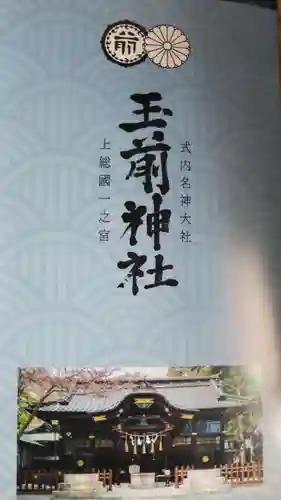 前
式内名神大社
玉前神社
上総國一之宮